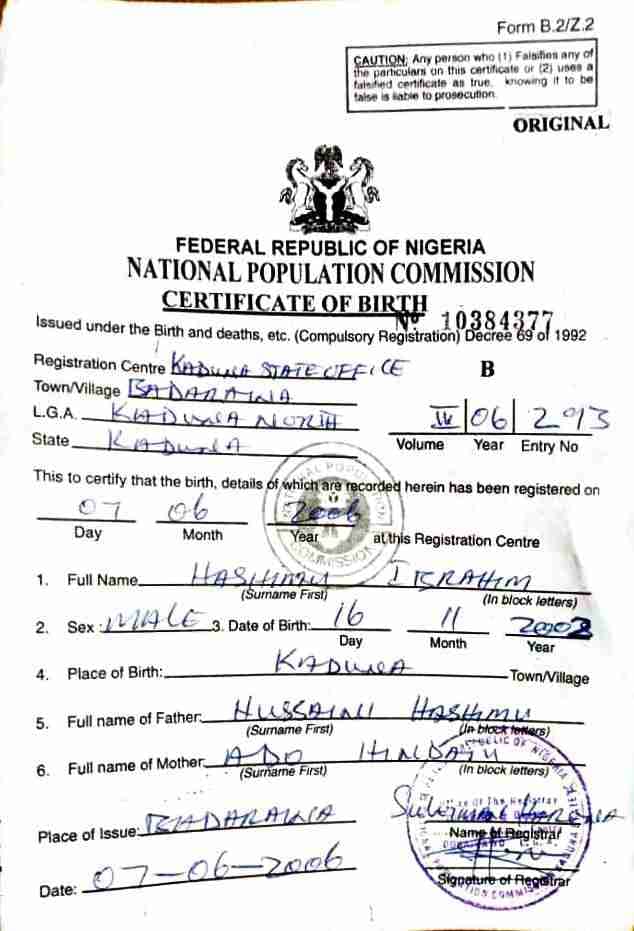 Form B.2/Z.2
CAUTION: Any person who (1) Falsifies any of
the particulars on this certificate or (2) uses a
falsified certificate as true, knowing it to be
false is liable to prosecution.
ORIGINAL
FEDERAL REPUBLIC OF NIGERIA
NATIONAL POPULATION COMMISSION
CERTIFICATE OF BIRTH
№ 10384377
Issued under the Birth and deaths, etc. (Compulsory Registration) Decree 69 of 1992
Registration Centre KADUNA STATE OFFICE B
Town/Village BADARAWA
L.G.A. KADUNA NORTH IV 06 293
State KADUNA Volume Year Entry No
This to certify that the birth, details of which are recorded herein has been registered on
07 06 2006
Day Month Year at this Registration Centre
NATIONAL POPULATION COMMISSION
1. Full Name HASHIMU IBRAHIM
(Surname First) (In block letters)
2. Sex: MALE 3. Date of Birth: 16 11 2002
Day Month Year
4. Place of Birth: KADUNA Town/Village
5. Full name of Father: HUSSAINI HASHIMU
(Surname First) (In block letters)
6. Full name of Mother: ADO HINDATU
(Surname First) (In block letters)
Place of Issue: BADARAWA
Name of Registrar
Date: 07-06-2006
Signature of Registrar